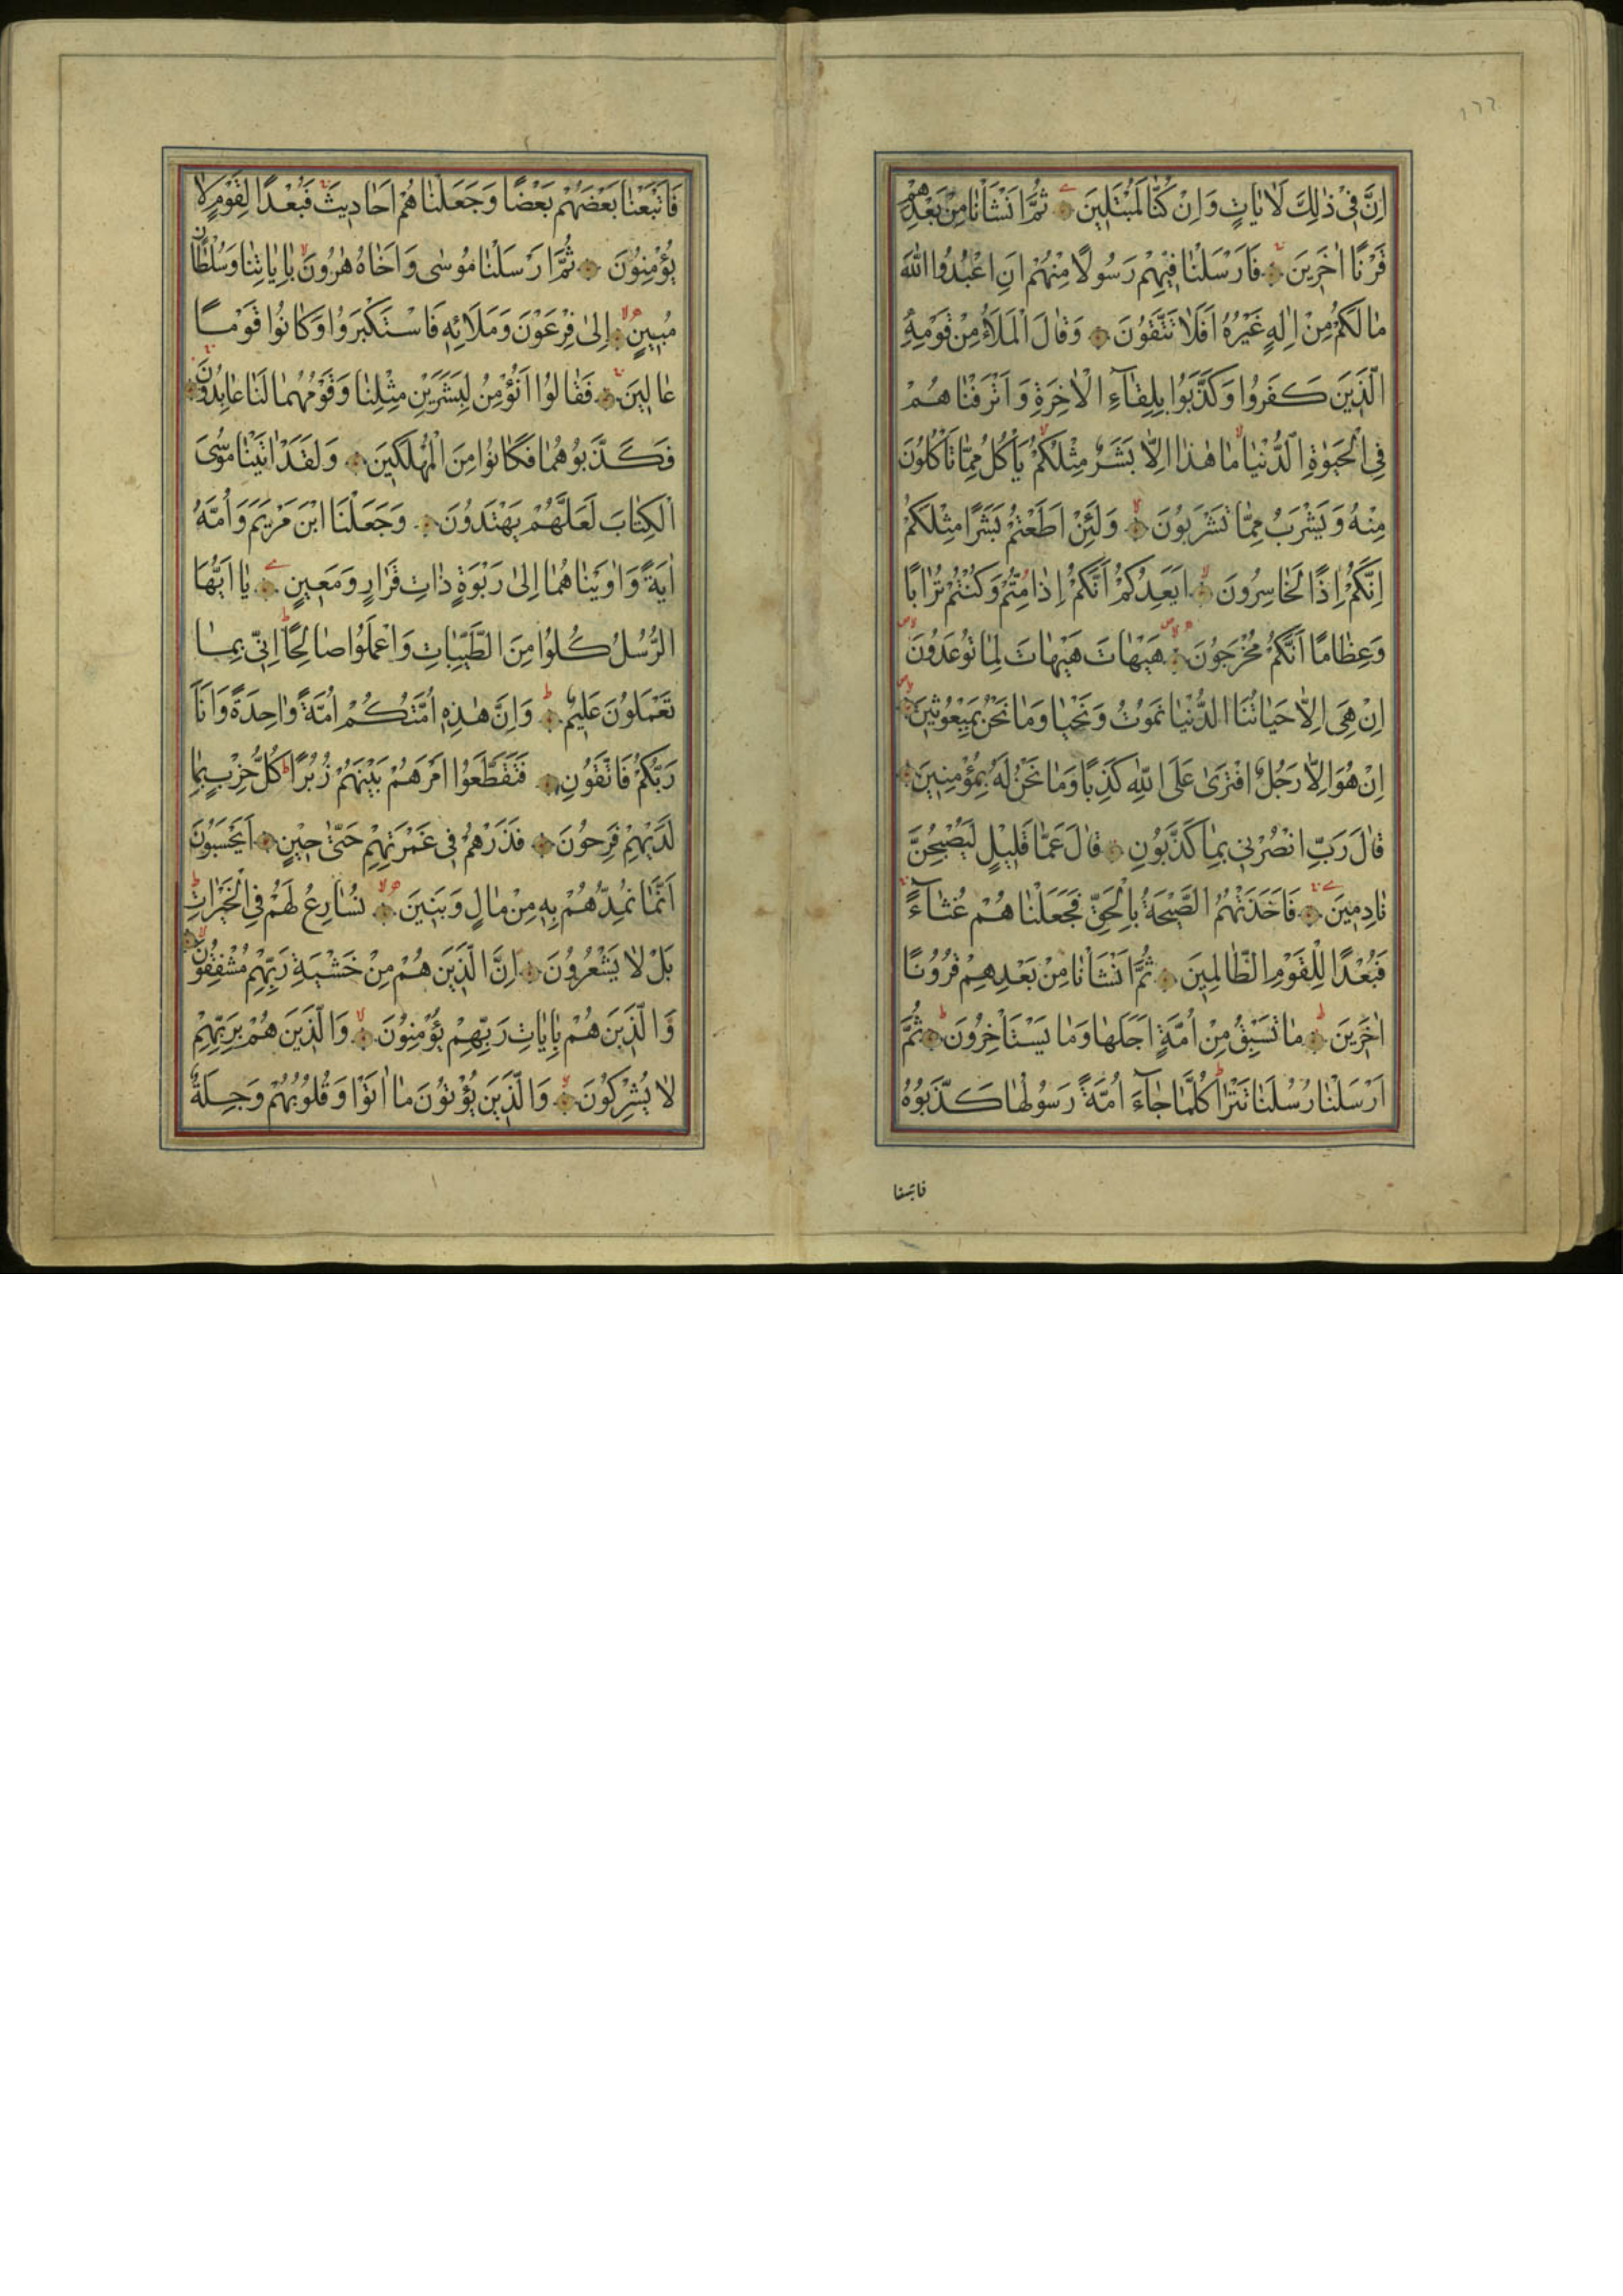 اِنَّ فِي ذٰلِكَ لَاٰيَاتٍ وَاِنْ كُنَّا لَمُبْتَلِينَ ثُمَّ اَنْشَاْنَا مِنْ بَعْدِهِمْ
قَرْنًا اٰخَرِينَ فَاَرْسَلْنَا فِيهِمْ رَسُولًا مِنْهُمْ اَنِ اعْبُدُوا اللّٰهَ
مَا لَكُمْ مِنْ اِلٰهٍ غَيْرُهُ اَفَلَا تَتَّقُونَ وَقَالَ الْمَلَاُ مِنْ قَوْمِهِ
الَّذِينَ كَفَرُوا وَكَذَّبُوا بِلِقَآءِ الْاٰخِرَةِ وَاَتْرَفْنَاهُمْ
فِي الْحَيٰوةِ الدُّنْيَا مَا هٰذَا اِلَّا بَشَرٌ مِثْلُكُمْ يَاْكُلُ مِمَّا تَاْكُلُونَ
مِنْهُ وَيَشْرَبُ مِمَّا تَشْرَبُونَ وَلَئِنْ اَطَعْتُمْ بَشَرًا مِثْلَكُمْ
اِنَّكُمْ اِذًا لَخَاسِرُونَ اَيَعِدُكُمْ اَنَّكُمْ اِذَا مِتُّمْ وَكُنْتُمْ تُرَابًا
وَعِظَامًا اَنَّكُمْ مُخْرَجُونَ هَيْهَاتَ هَيْهَاتَ لِمَا تُوعَدُونَ
اِنْ هِيَ اِلَّا حَيَاتُنَا الدُّنْيَا نَمُوتُ وَنَحْيَا وَمَا نَحْنُ بِمَبْعُوثِينَ
اِنْ هُوَ اِلَّا رَجُلٌ افْتَرٰى عَلَى اللّٰهِ كَذِبًا وَمَا نَحْنُ لَهُ بِمُؤْمِنِينَ
قَالَ رَبِّ انْصُرْنِي بِمَا كَذَّبُونِ قَالَ عَمَّا قَلِيلٍ لَيُصْبِحُنَّ
نَادِمِينَ فَاَخَذَتْهُمُ الصَّيْحَةُ بِالْحَقِّ فَجَعَلْنَاهُمْ غُثَآءً
فَبُعْدًا لِلْقَوْمِ الظَّالِمِينَ ثُمَّ اَنْشَاْنَا مِنْ بَعْدِهِمْ قُرُونًا
اٰخَرِينَ مَا تَسْبِقُ مِنْ اُمَّةٍ اَجَلَهَا وَمَا يَسْتَاْخِرُونَ ثُمَّ
اَرْسَلْنَا رُسُلَنَا تَتْرَا كُلَّمَا جَآءَ اُمَّةً رَسُولُهَا كَذَّبُوهُ
فاتبعنا
فَاَتْبَعْنَا بَعْضَهُمْ بَعْضًا وَجَعَلْنَاهُمْ اَحَادِيثَ فَبُعْدًا لِقَوْمٍ لَا
يُؤْمِنُونَ ثُمَّ اَرْسَلْنَا مُوسٰى وَاَخَاهُ هٰرُونَ بِاٰيَاتِنَا وَسُلْطَانٍ
مُبِينٍ اِلٰى فِرْعَوْنَ وَمَلَائِهِ فَاسْتَكْبَرُوا وَكَانُوا قَوْمًا
عَالِينَ فَقَالُوا اَنُؤْمِنُ لِبَشَرَيْنِ مِثْلِنَا وَقَوْمُهُمَا لَنَا عَابِدُونَ
فَكَذَّبُوهُمَا فَكَانُوا مِنَ الْمُهْلَكِينَ وَلَقَدْ اٰتَيْنَا مُوسَى
الْكِتَابَ لَعَلَّهُمْ يَهْتَدُونَ وَجَعَلْنَا ابْنَ مَرْيَمَ وَاُمَّهُ
اٰيَةً وَاٰوَيْنَاهُمَا اِلٰى رَبْوَةٍ ذَاتِ قَرَارٍ وَمَعِينٍ يَا اَيُّهَا
الرُّسُلُ كُلُوا مِنَ الطَّيِّبَاتِ وَاعْمَلُوا صَالِحًا اِنِّي بِمَا
تَعْمَلُونَ عَلِيمٌ وَاِنَّ هٰذِهِ اُمَّتُكُمْ اُمَّةً وَاحِدَةً وَاَنَا
رَبُّكُمْ فَاتَّقُونِ فَتَقَطَّعُوا اَمْرَهُمْ بَيْنَهُمْ زُبُرًا كُلُّ حِزْبٍ بِمَا
لَدَيْهِمْ فَرِحُونَ فَذَرْهُمْ فِي غَمْرَتِهِمْ حَتّٰى حِينٍ اَيَحْسَبُونَ
اَنَّمَا نُمِدُّهُمْ بِهِ مِنْ مَالٍ وَبَنِينَ نُسَارِعُ لَهُمْ فِي الْخَيْرَاتِ
بَلْ لَا يَشْعُرُونَ اِنَّ الَّذِينَ هُمْ مِنْ خَشْيَةِ رَبِّهِمْ مُشْفِقُونَ
وَالَّذِينَ هُمْ بِاٰيَاتِ رَبِّهِمْ يُؤْمِنُونَ وَالَّذِينَ هُمْ بِرَبِّهِمْ
لَا يُشْرِكُونَ وَالَّذِينَ يُؤْتُونَ مَا اٰتَوْا وَقُلُوبُهُمْ وَجِلَةٌ